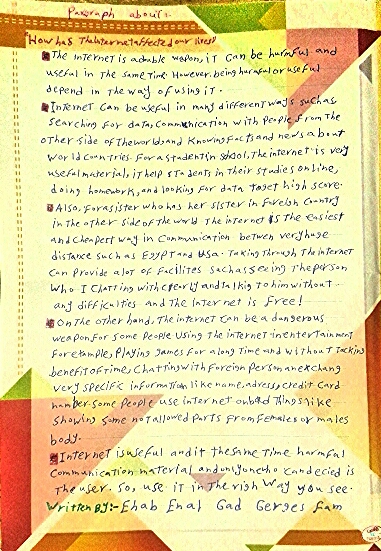 Paragraph about:-
"How has The Internet affected our lives?
The Internet is a duble weapon, it Can be harmful and
useful in the same time. However, being harmful or useful
depend on the way of using it.
Internet Can be useful in many different ways such as
searching for data, Communication with People from the
other side of The world, and Knowing Facts and news about
World Countries. For a student in school, The internet is very
useful material, it help students in their studies online,
doing homework, and looking for data to get high score.
Also, for a sister who has her sister in foreign Country
in the other side of the world The internet is the easiest
and cheapest way in Communication betwen very huge
distance such as Egypt and USA. Talking Through The internet
Can Provide a lot of Facilites such as seeing The person
Who I Chatting with clearly and talking to him without
any difficulties and The Internet is Free!
On the other hand, The internet Can be a dangerous
weapon for some People Using The internet in entertainment
For example, Playing games for a long Time and without Tacking
benefit of time, Chatting with foreign Person and exchang
very specific information like name, adress, credit Card
number. Some People use internet on bad Things like
showing some not allowed Parts From Females or males
body.
Internet is useful and it the same time harmful
Communication material and only one who can decied is
The user. So, use it in The righ Way you see.
Written By:- Ehab Enal Gad Gerges